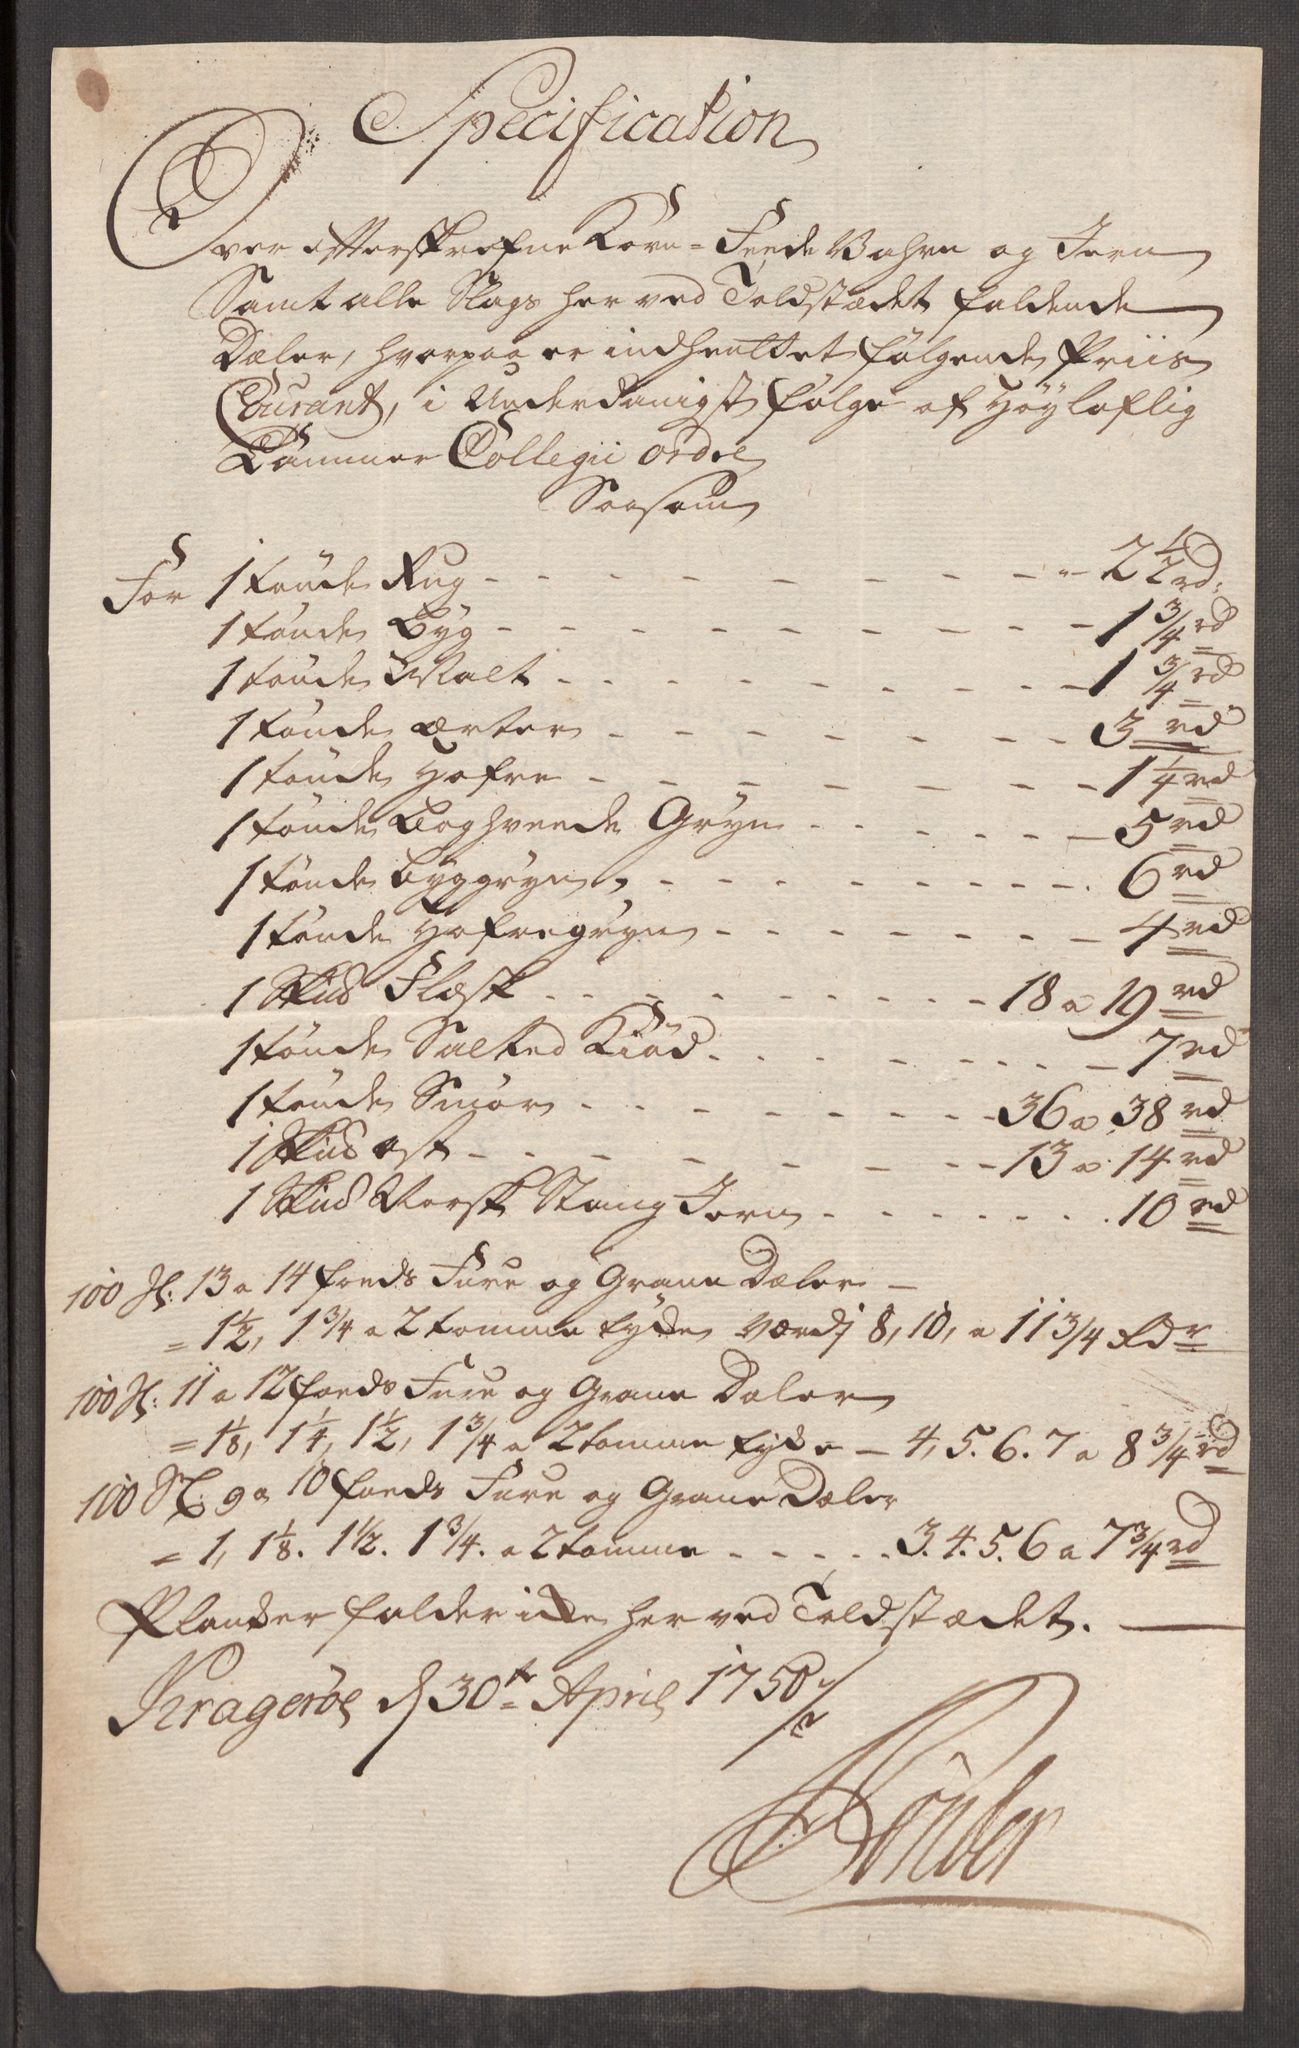 Specification
Over effterskrefne Korn = Feede Vahre og Jern
Samt alle Slags her ved Toldstædet faldende
Dæler, hvorpaa er indhenttet følgende Priis
Courant, i Underdanigst følge af Høyloflig
Cammer Collegii ordre
Saasom
For 1 tønde Rug - - - - - - - - - 2 1/2 rd:
1 tønde Byg - - - - - - - - - 1 3/4 rd
1 tønde Malt - - - - - - - - 1 3/4 rd
1 tønde Ærter - - - - - - - 3 rd
1 tønde Hafre - - - - - - - 1 1/4 rd
1 tønde Boghveede Gryn - - - - - - 5 rd
1 tønde byggryn - - - - - - - - 6 rd
1 tønde Hafregryn - - - - - - - 4 rd
1 Skud Flæsk - - - - - - - - - 18 a 19 rd
1 tønde Salted Kiød - - - - - - - 7 rd
1 tønde Smør - - - - - - - - 36 a 38 rd
1 Skud ost - - - - - - - 13 a 14 rd
1 Skud Norsk Stang Jern - - - - - - 10 rd
100 St: 13 a 14 foeds Fure og Grane Dæler -
= 1 1/2, 1 3/4 a 2 tomme tykke værdj 8, 10, a 11 3/4 Rdr
100 St: 11 a 12 foeds Fure og Grane Dæler
= 1 1/8, 1 1/4, 1 1/2, 1 3/4 a 2 tomme tykke - 4, 5. 6. 7 a 8 3/4 rd
100 St. 9 a 10 foeds Fure og Grane Dæler
= 1, 1 1/8. 1 1/2. 1 3/4. a 2 tomme - - - - - 3. 4. 5. 6 a 7 3/4 rd
Planker falder ikke her ved Toldstædet.
Kragerøe d 30te April 1750